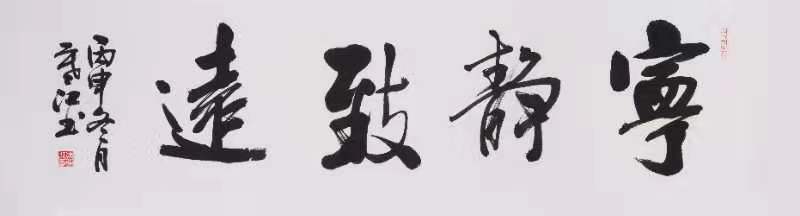 寧静致遠
丙申冬月
江书